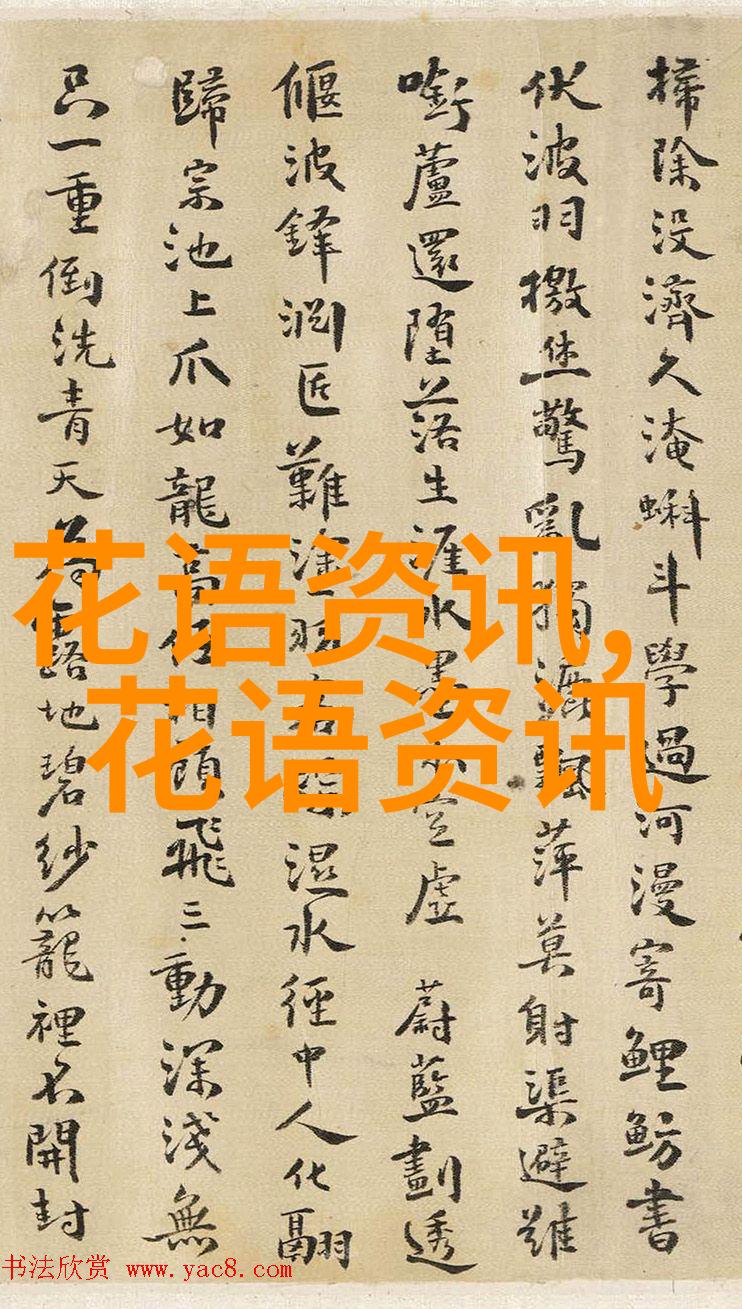 掃除没濟久淹蝌斗學過河漫寄鯉魴書
伏波羽檄生驚亂獨漉飄萍莫射渠避雖
啣蘆還墮落生涯水墨空虛 蔚藍劃透
偃波鋒淵匠難塗湿水徑中人化翮
歸宗池上爪如龍頭飛三動深淺無
只一重倒洗青天露地碧紗籠裡不開封
花语资讯,
花语资讯
书法欣赏 www.yac8.com